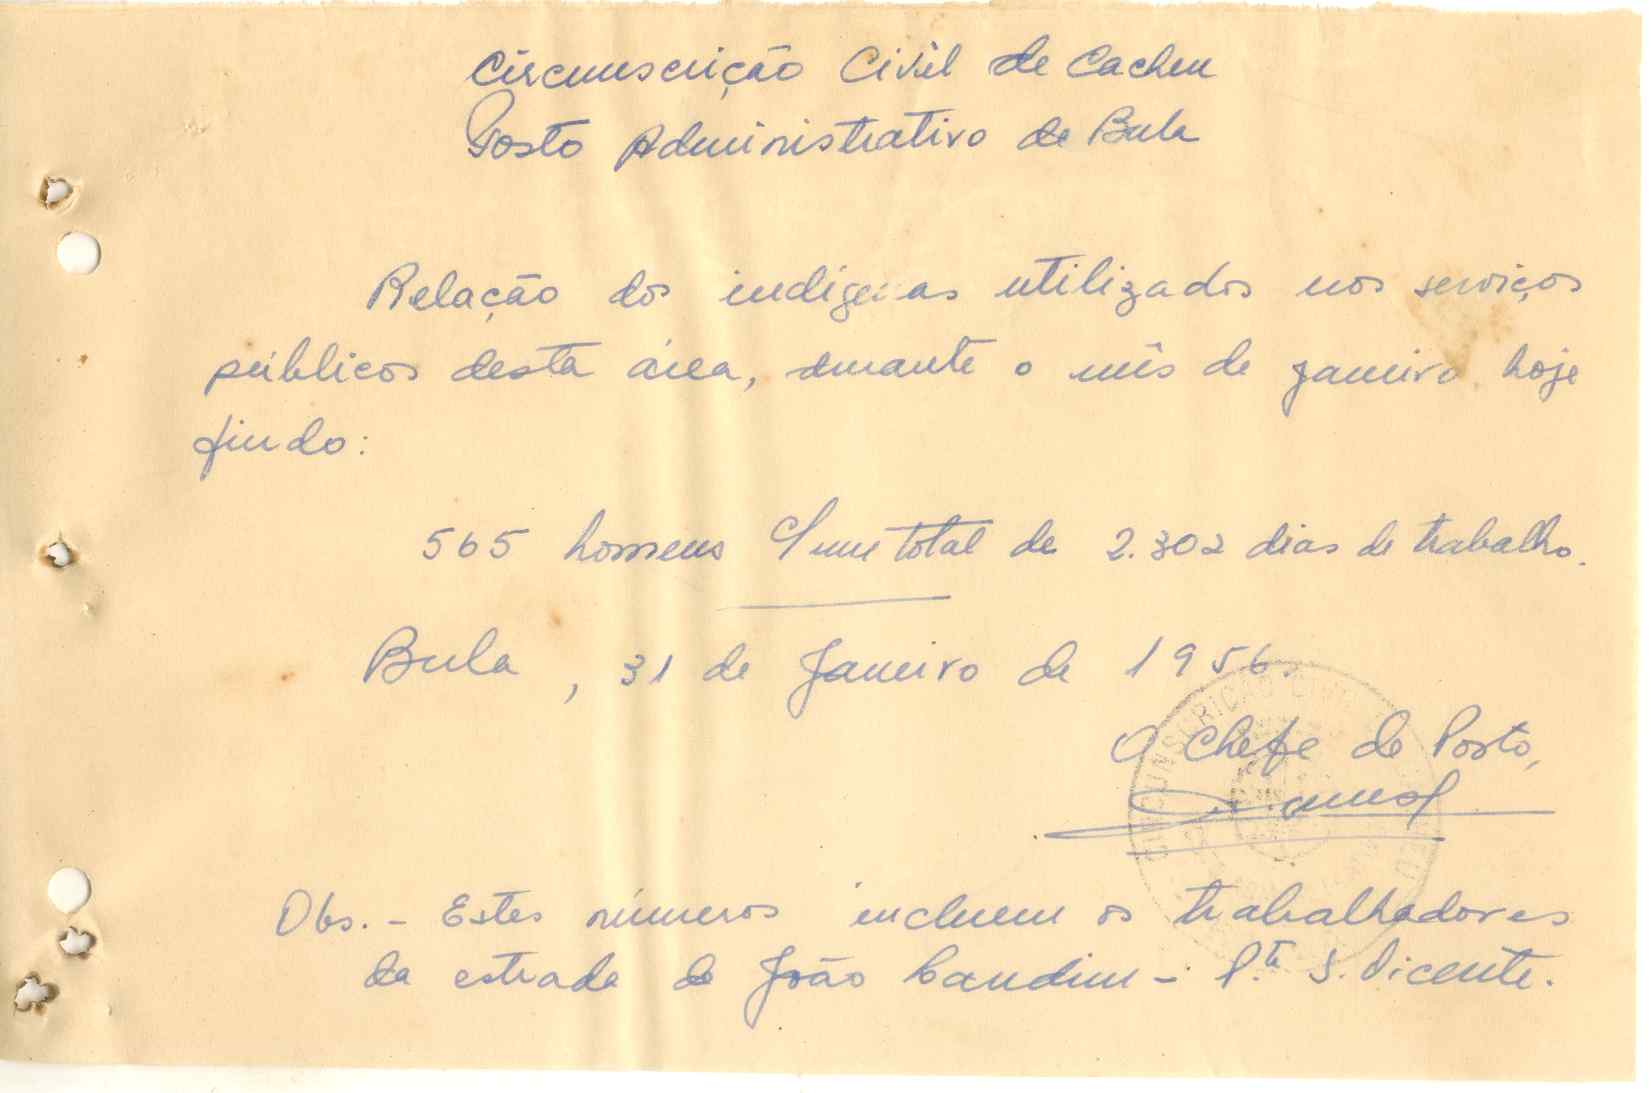 Circunscrição Civil de Cacheu
Posto Administrativo de Bula
Relação dos indígenas utilizados nos serviços
públicos desta área, durante o mês de janeiro hoje
findo:
565 homens num total de 2.302 dias de trabalho.
Bula, 31 de Janeiro de 1956.
O Chefe de Posto,
CIRCUNSCRIÇÃO CIVIL
Obs. - Estes números incluem os trabalhadores
da estrada de João Landim - P.te S. Vicente.